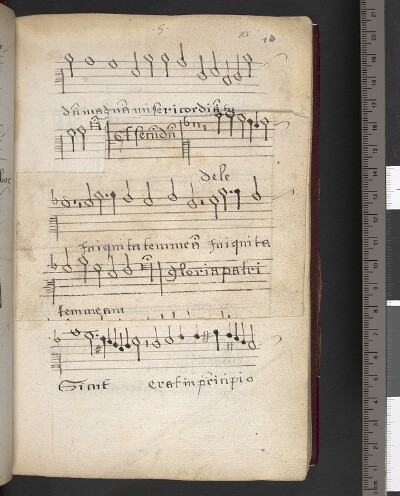 5
dū magnā misericordiā
Et secūdū
dele
Iniquitatem meā Iniquita
gloria patri
tem meam
Sicut erat in prīcipio